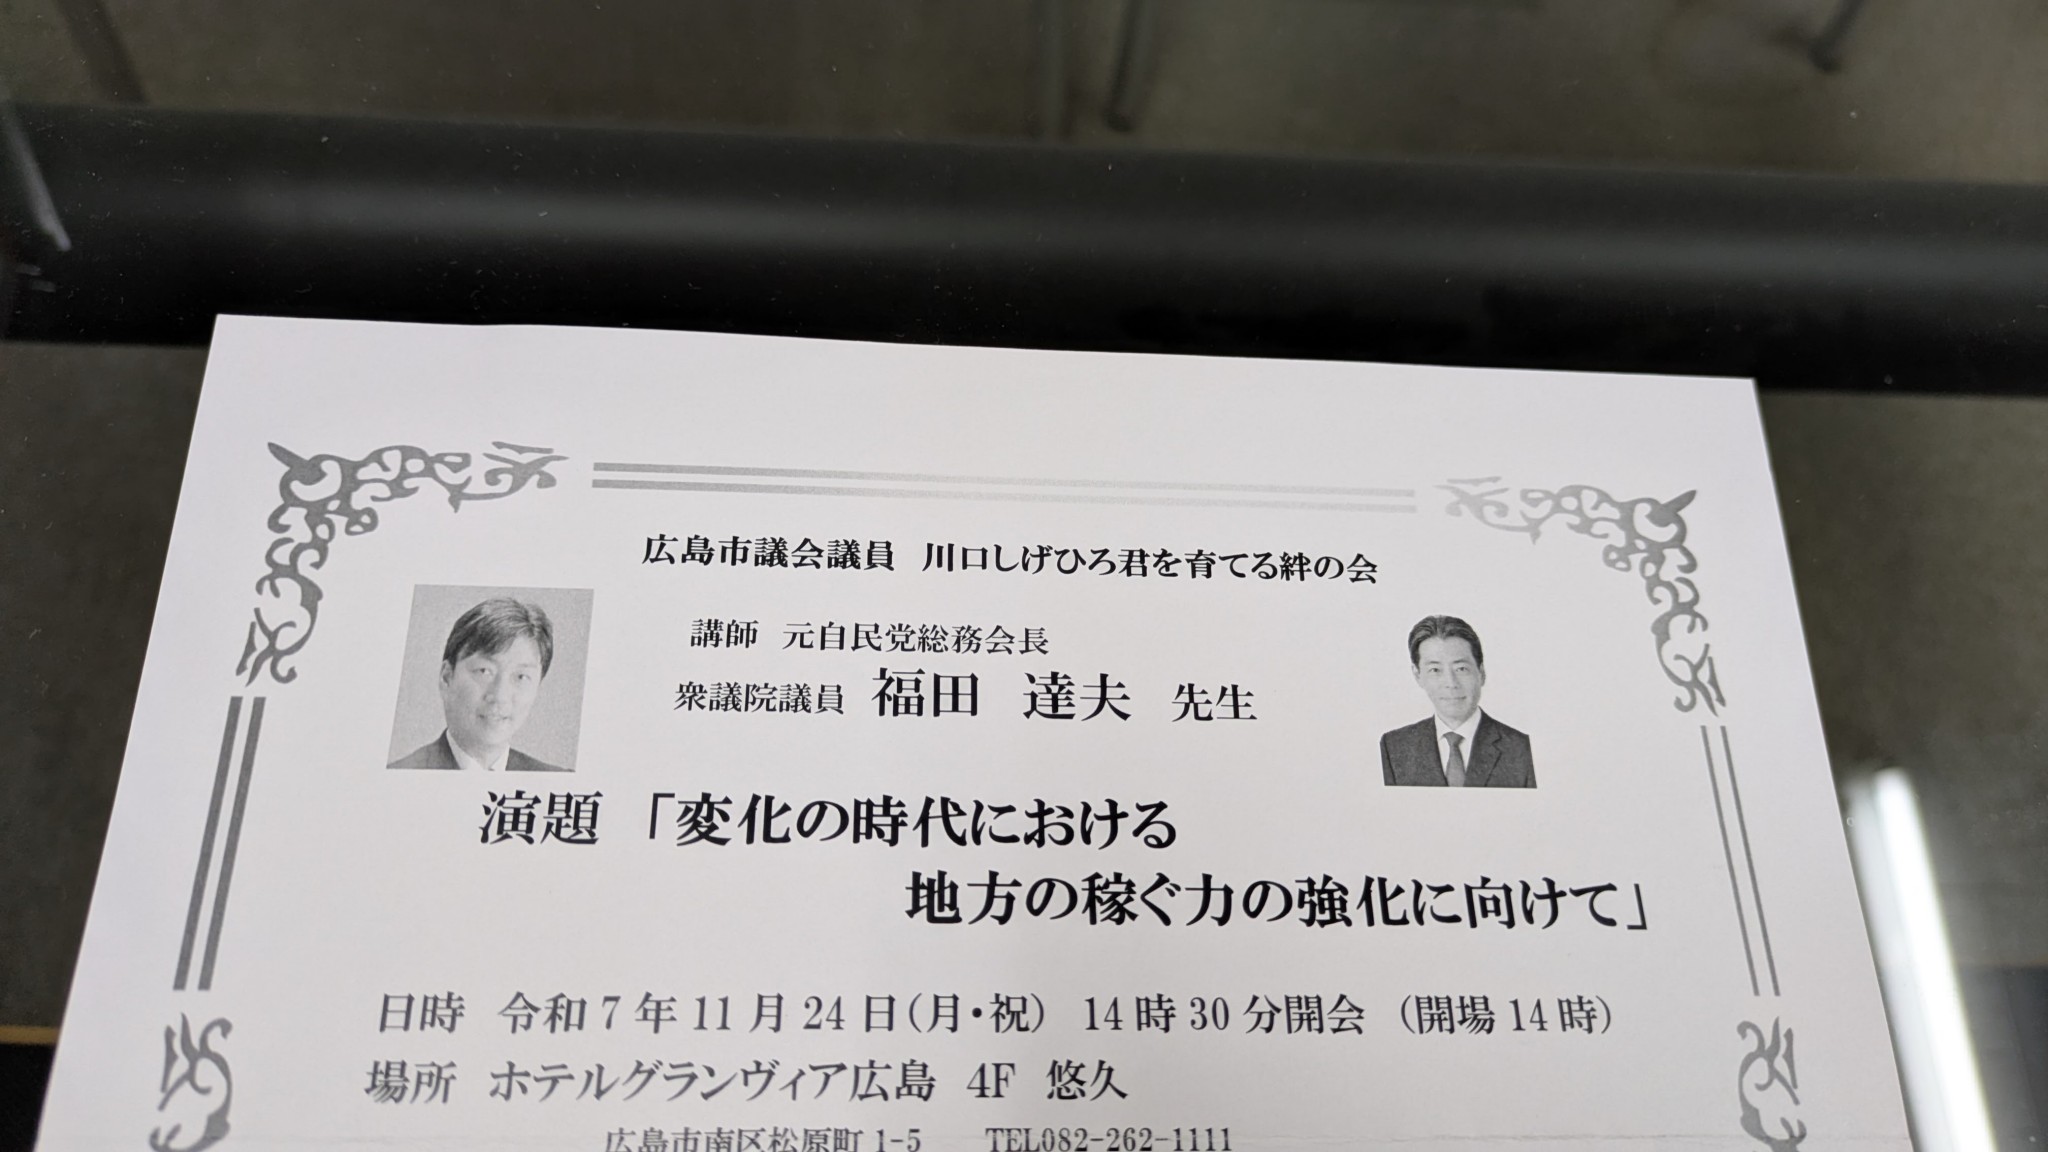 広島市議会議員 川口しげひろ君を育てる絆の会
講師 元自民党総務会長
衆議院議員 福田 達夫 先生
演題 「変化の時代における
地方の稼ぐ力の強化に向けて」
日時 令和7年11月24日(月・祝) 14時30分開会 (開場14時)
場所 ホテルグランヴィア広島 4F 悠久
広島市南区松原町1-5 TEL082-262-1111